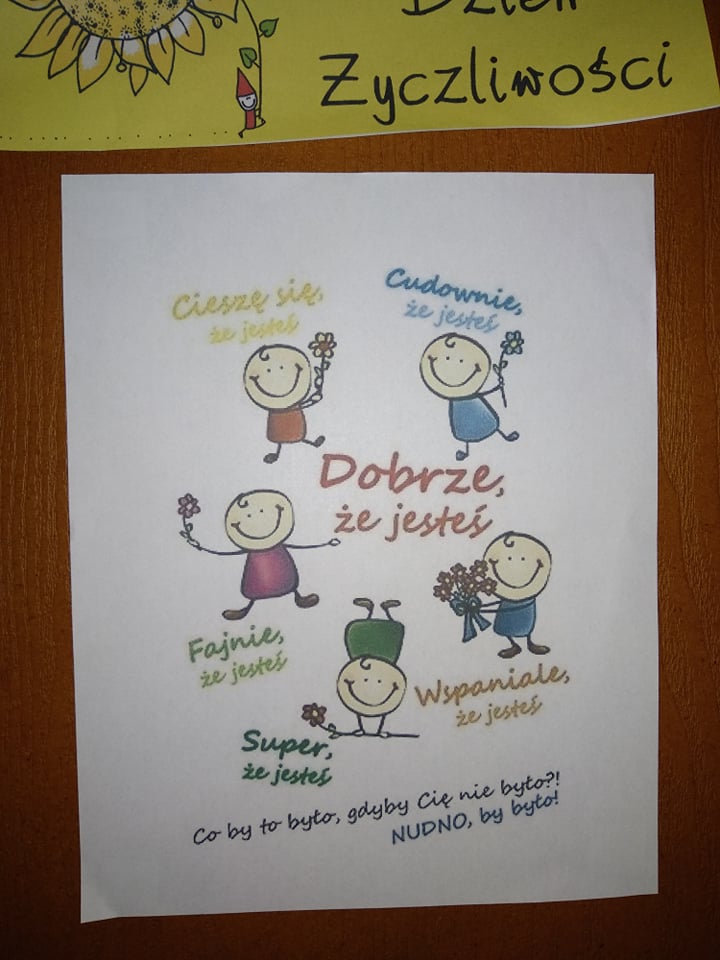 Dzień
Życzliwości
Cieszę się,
że jesteś
Cudownie,
że jesteś
Dobrze,
że jesteś
Fajnie,
że jesteś
Wspaniale,
że jesteś
Super,
że jesteś
Co by to było, gdyby Cię nie było?!
NUDNO, by było!